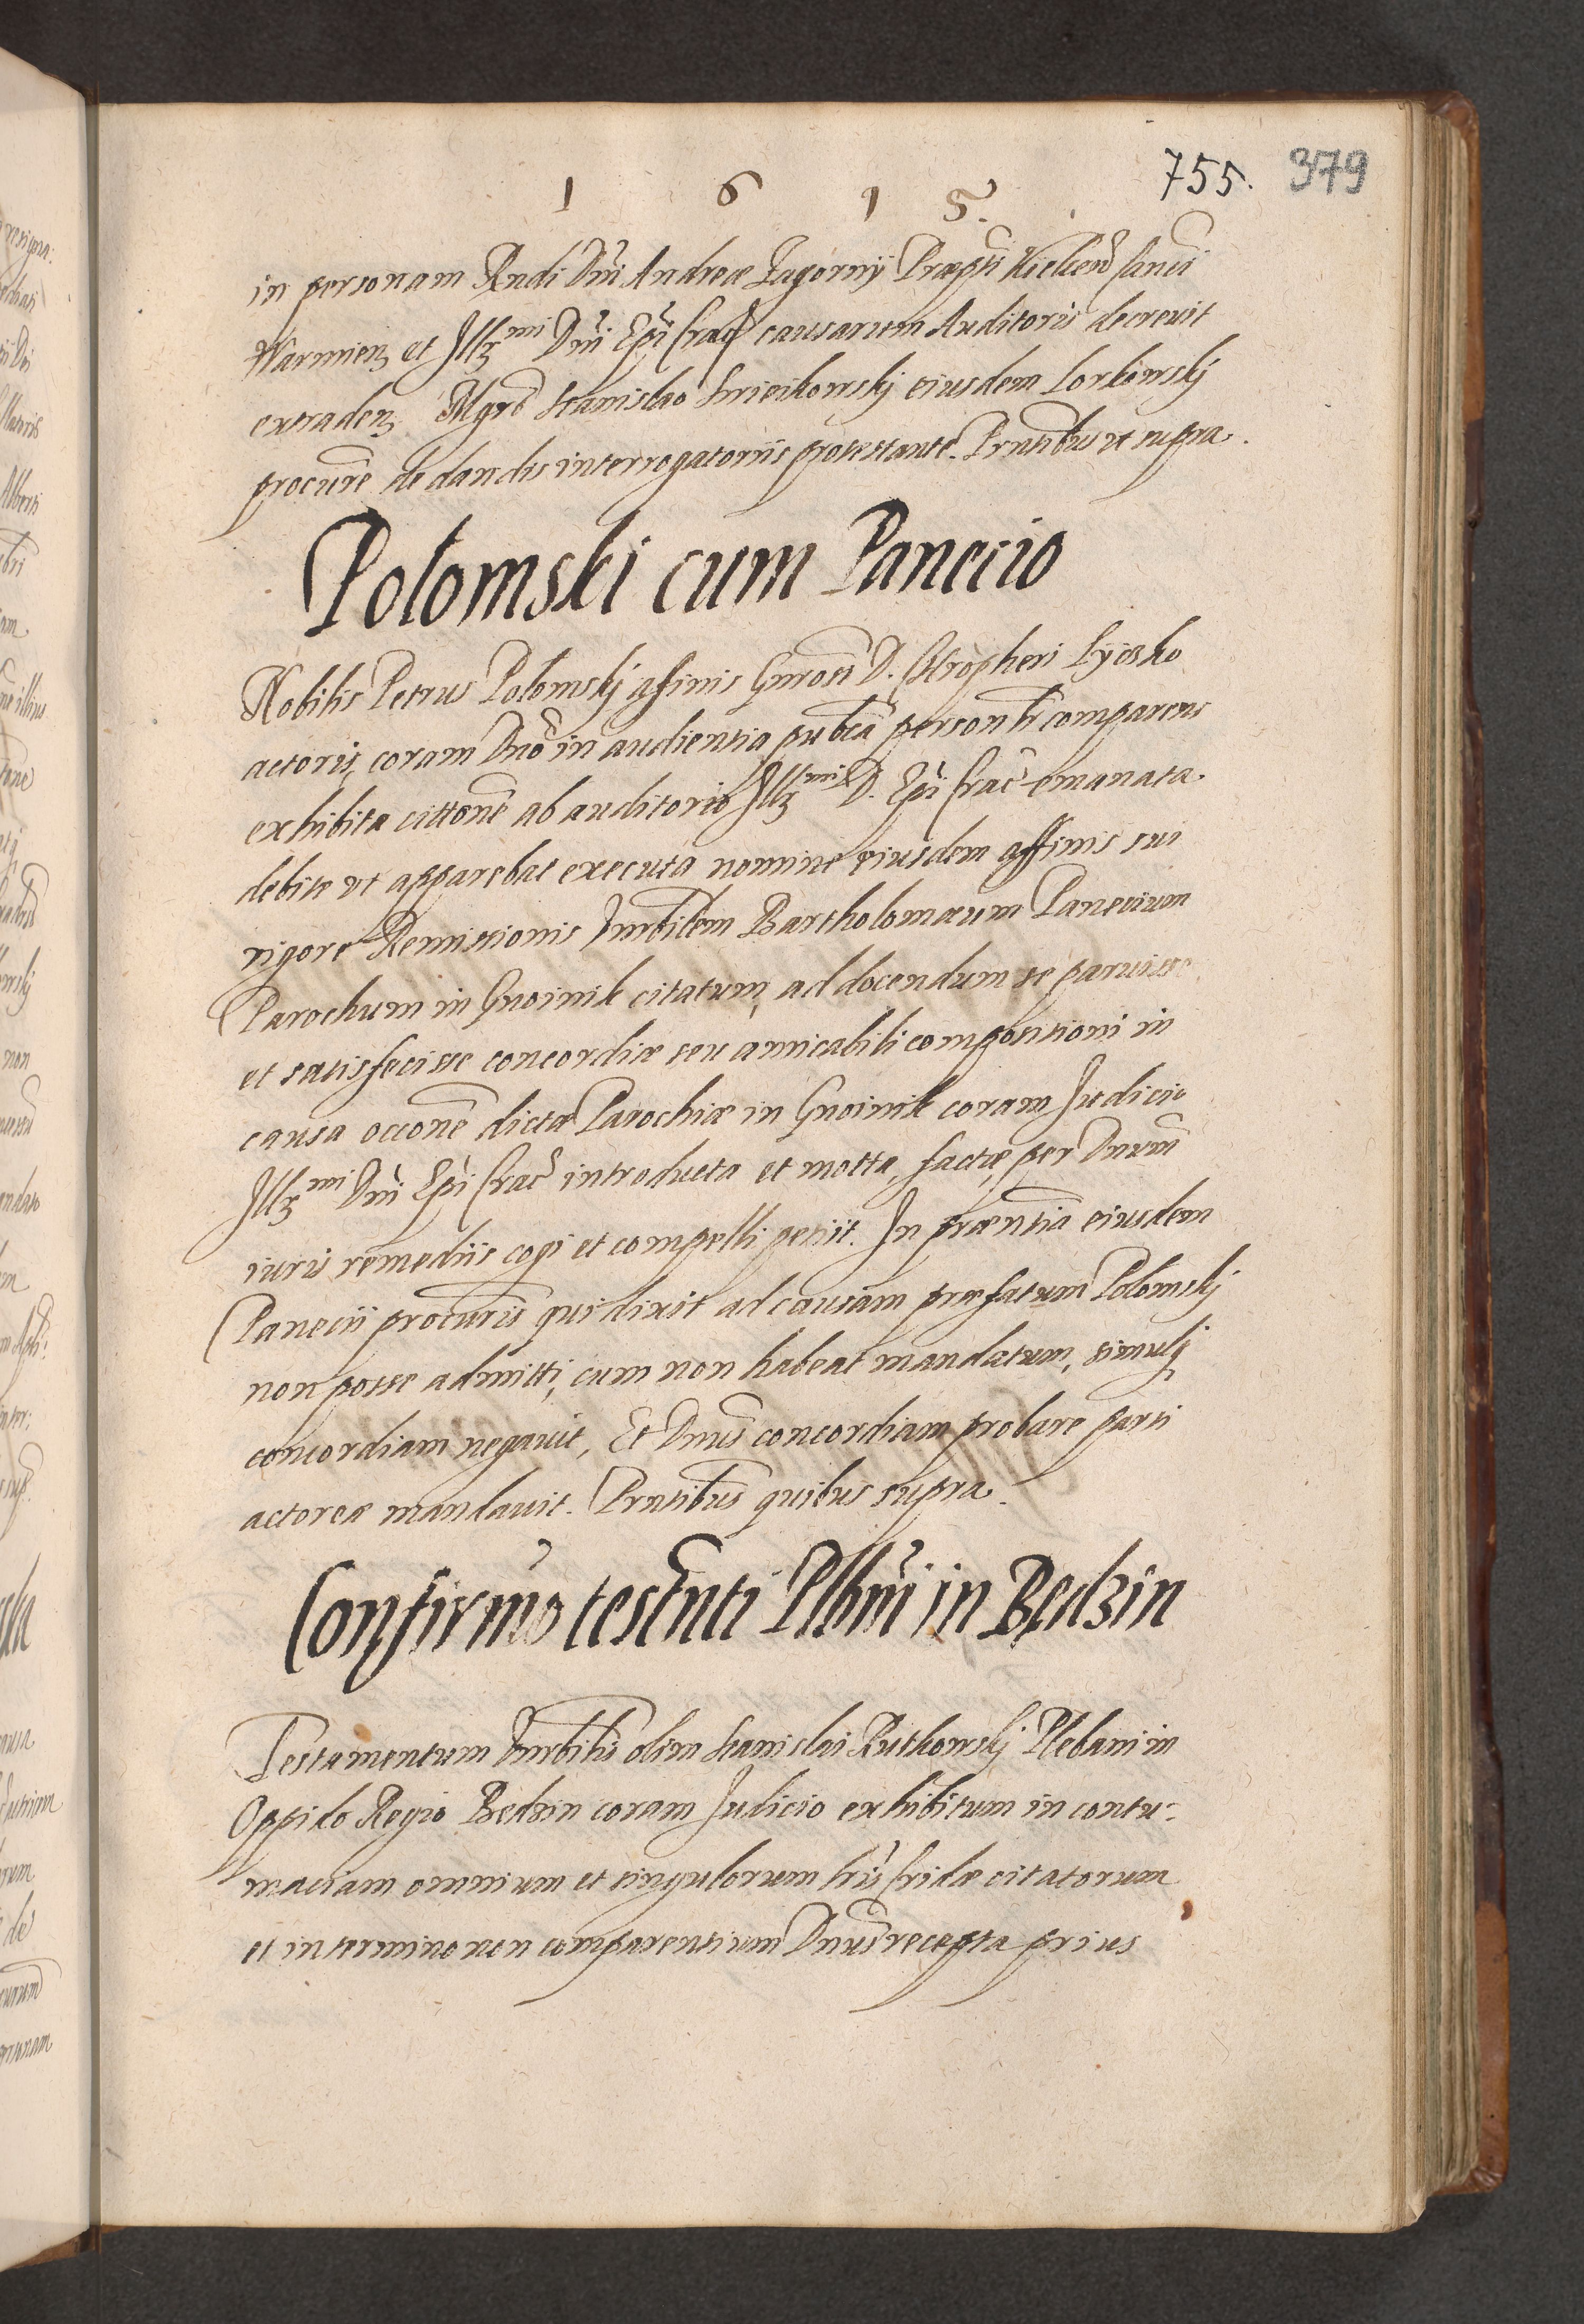 755. 379
1 6 1 5.
in personam Rndi Dni Andreæ Zagorny Præpti Kielcen Canci
Warmien et Illr mi Dni Epi Crac causarum Auditoris decrevit
extraden. Mgro Stanislao eiusdem Lorkowskj
procure de dandis interrogatoriis protestante. Prntibus ut supra.
Polomski cum Panecio
Nobilis Petrus Polomskj affinis Gnrosi D. Chropheri Lyosko
actoris, coram Dno in audientia publca personlr comparens
exhibita cittone ab auditorio Illr mi D. Epi Crac emanata
debite ut apparebat executa nomine eiusdem affinis sui
rigore Remissionis Hnrbilem Bartholomæum Panecium
Parochum in Gnoinik citatum, ad docendum se paruisse
et satisfecisse concordiæ seu amicabili compositioni in
causa occone dictæ Parochiæ in Gnoinik coram Judicio
Illr mi Dni Epi Crac introducta et motta, factæ, per Dnum
iuris remediis cogi et compelli petiit. In præntia eiusdem
Panecii procuris qui dixit ad causam præfatum Polomskj
non posse admitti, cum non habeat mandatum, simulq
concordiam negavit, Et Dnus concordiam probare parti
actoreæ mandavit. Prntibus quibus supra.
Confirmo testmti Plbni in Bedzin
Testamentum Hnrbilis olim Stanislai Rutkowskj Plebani in
Oppido Regio Bedzin coram Judicio exhibitum in contu-
maciam omnium et singulorum citatorum
et in termino non comparentium Dnus recepta prius